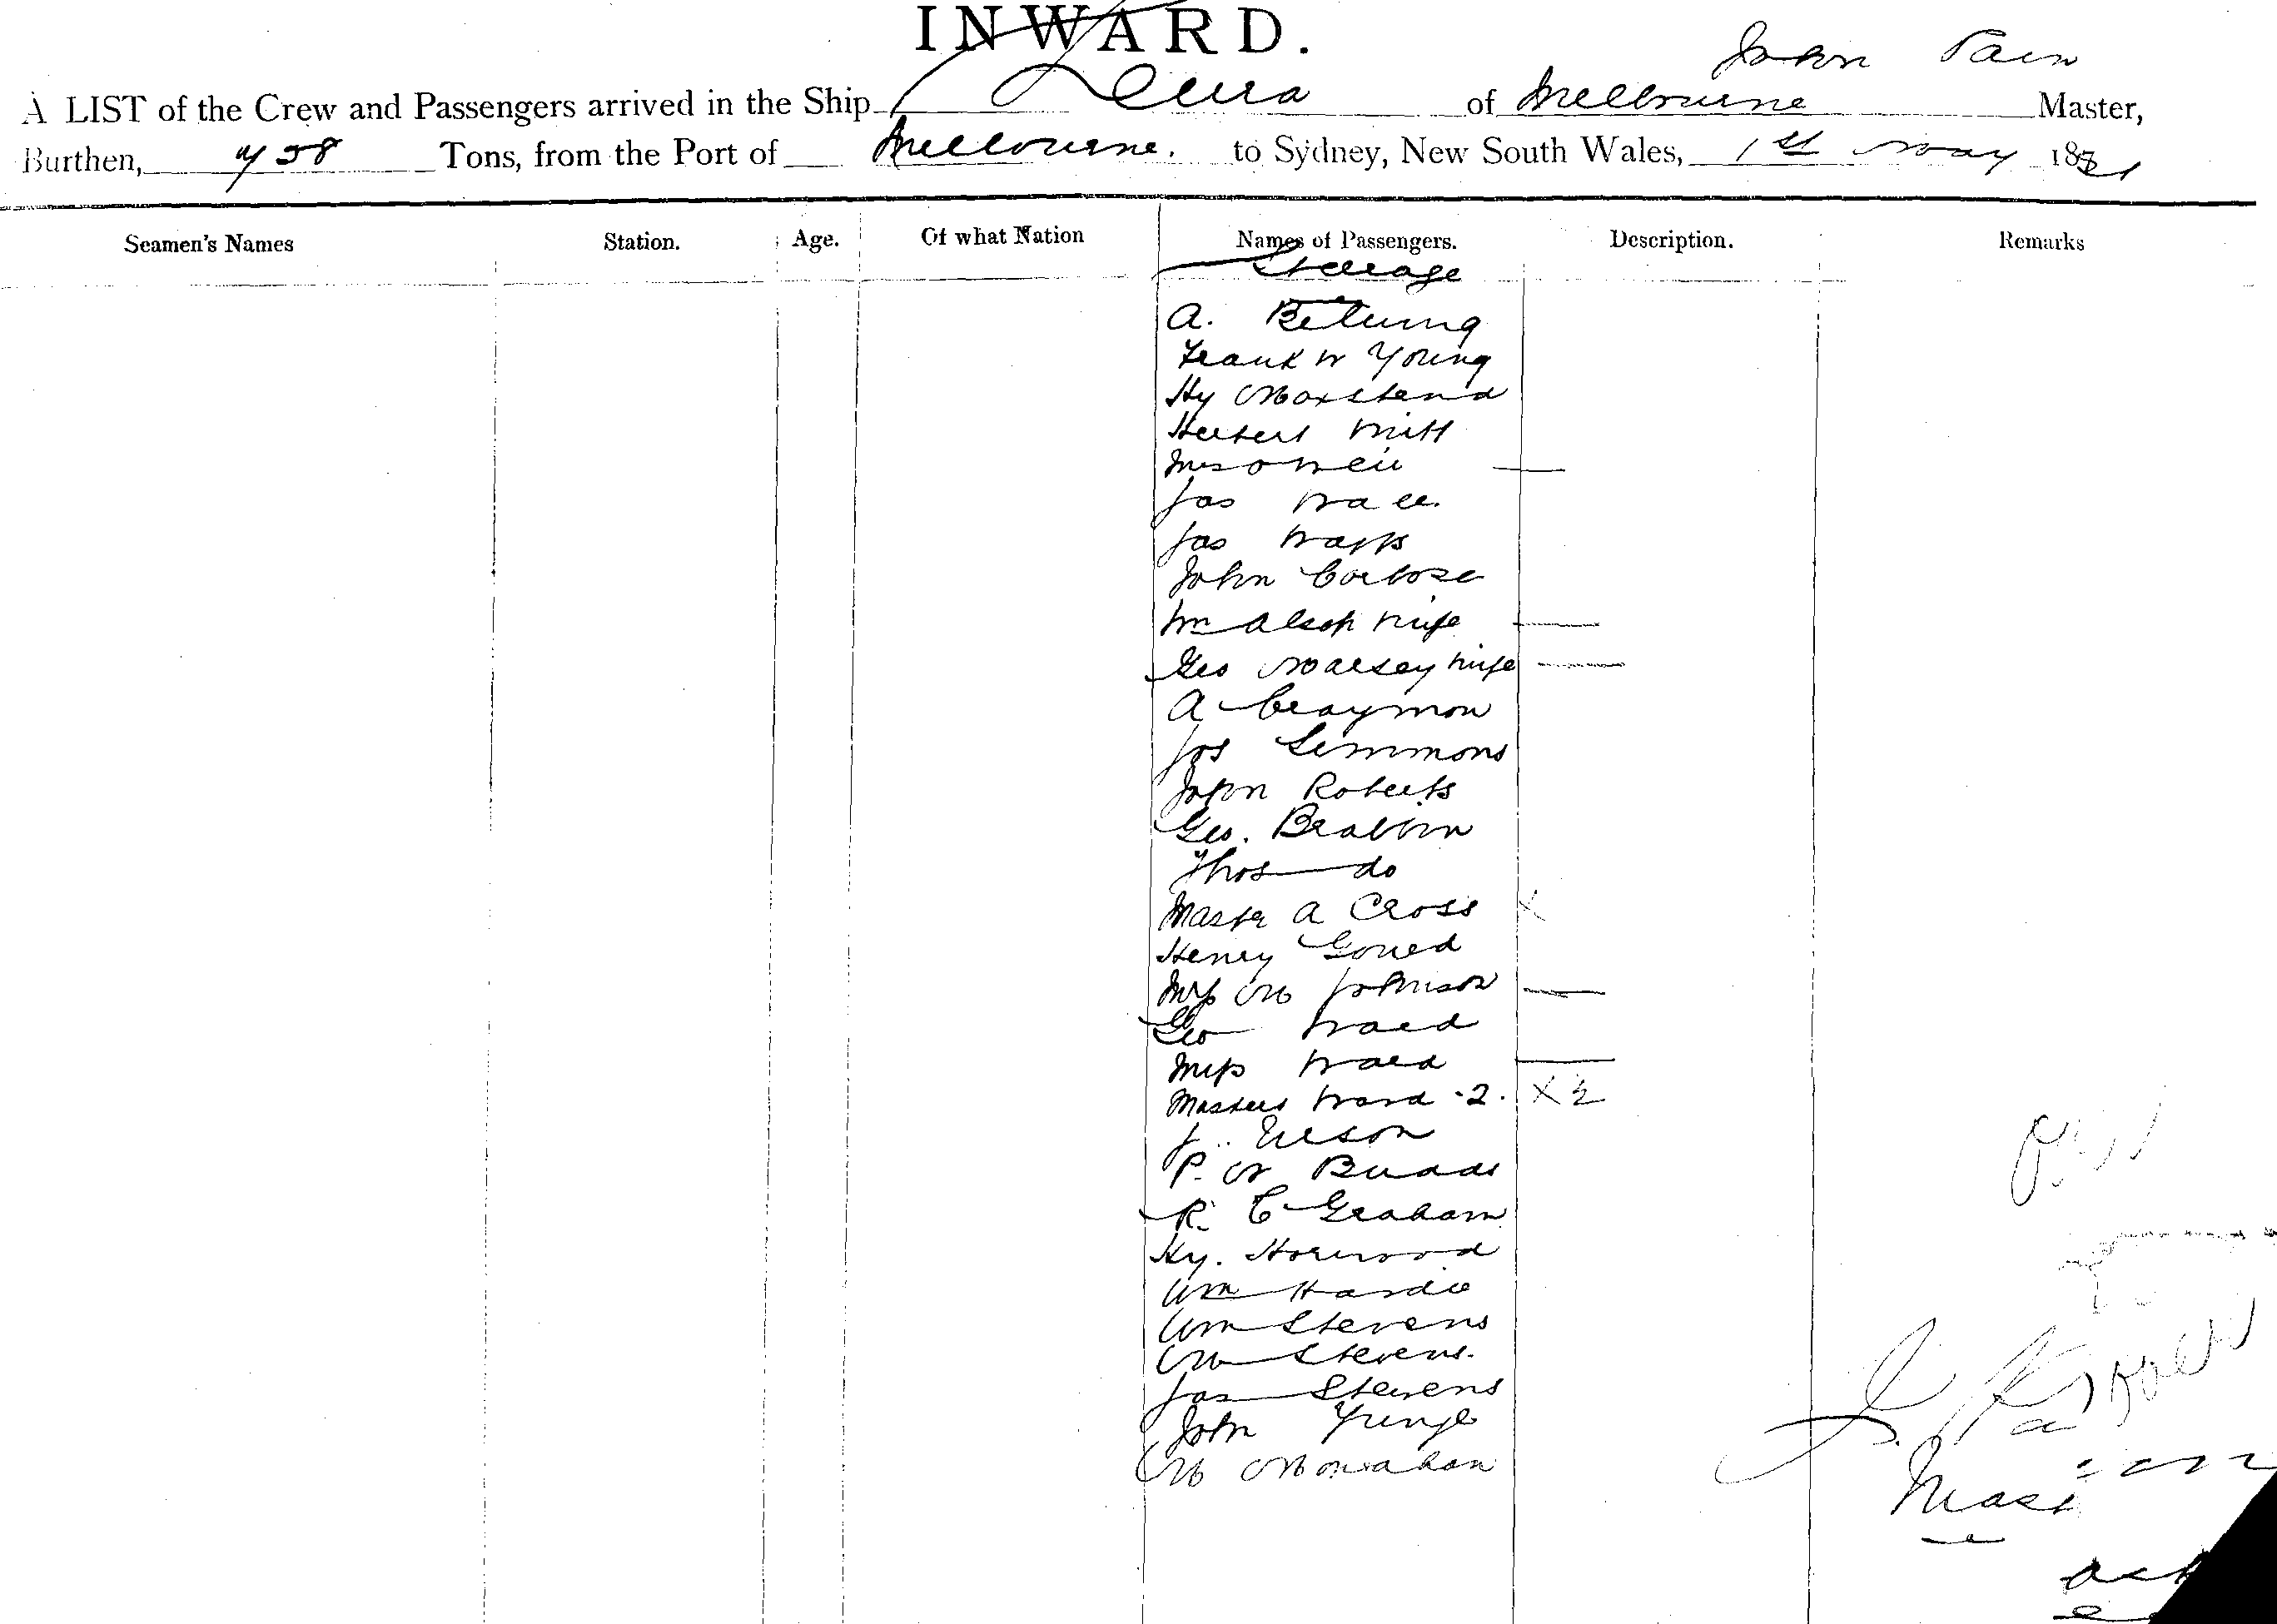 INWARD.
John Pain
A LIST of the Crew and Passengers arrived in the Ship Leura of Melbourne Master,
Burthen, 758 Tons, from the Port of Melbourne. to Sydney, New South Wales, 1st May 1881
Seamen's Names Station. Age. Of what Nation Names of Passengers. Description. Remarks
Steerage
A.
Frank W Young
Hy
Herbert Mitt
Mrs O Weir
Jas Wall
Jas Watts
John
Wm Alsop Wife
Geo Wife
A
Jos Simmons
John Roberts
Geo. Brabbin
Thos do
Master A Cross X
Henry Gould
M Johnson
Geo Ward
Miss Ward
Masters Ward 2. X 2
J. Nelson
P. W Budds
R. C Graham
Hy. Horwood
Wm Hardie
Wm Stevens
M Stevens
Jas Stevens
John
M Monahan